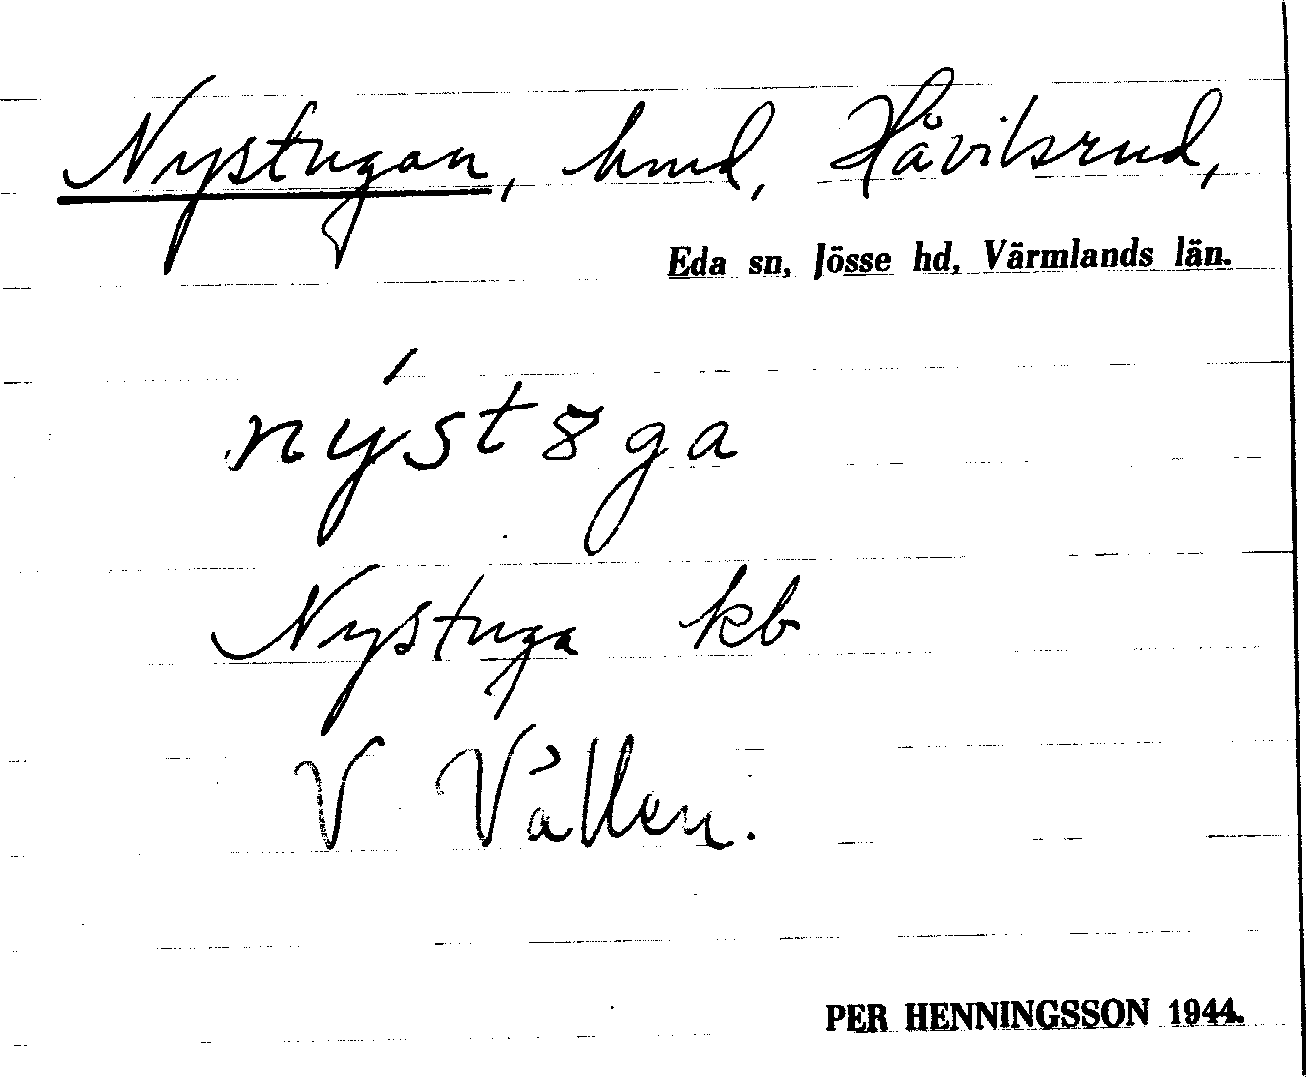 Nystugan, hmd, Håvilsrud,
Eda sn, Jösse hd, Värmlands län.
nýstȣga
Nystuga kb
V Vållen.
PER HENNINGSSON 1944.